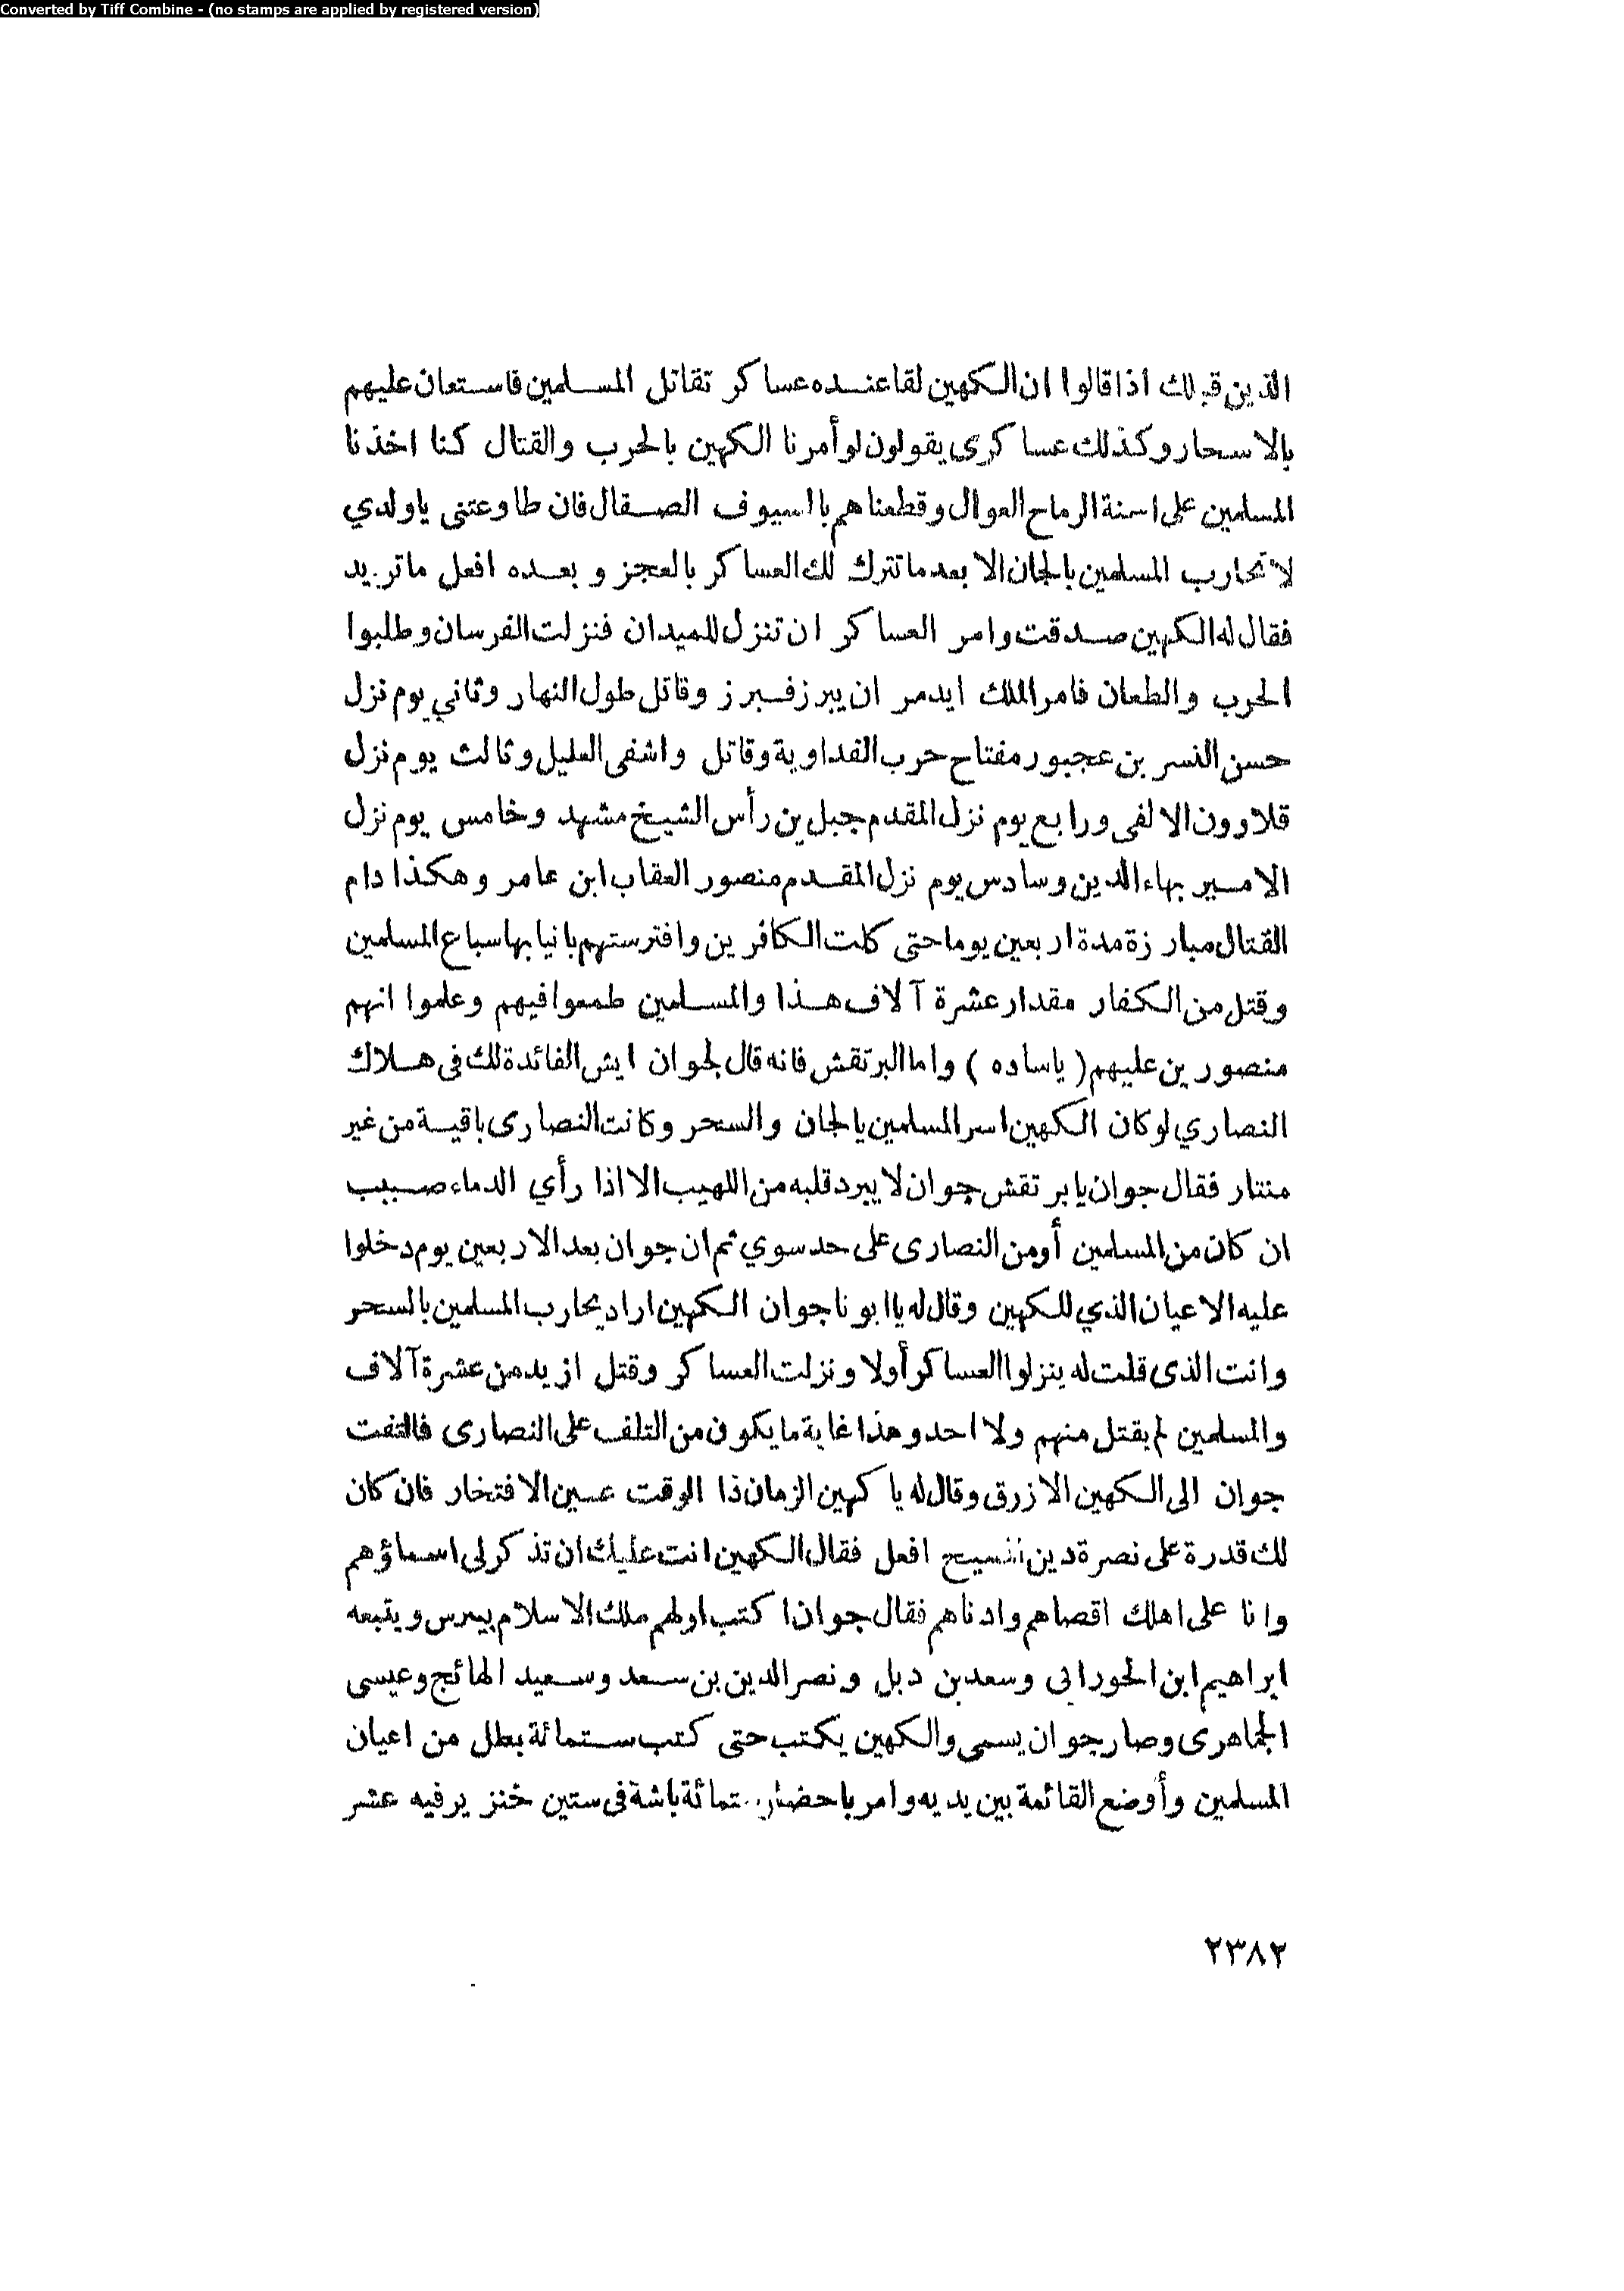 Converted by Tiff Combine - (no stamps are applied by registered version)
الذين قبلك اذا قالوا ان الكهين لقا عنده عساكر تقاتل المسلمين فاستعان عليهم
بالاسحار وكذلك عساكرى يقولون لو أمرنا الكهين بالحرب والقتال كنا اخذنا
المسلمين على اسنة الرماح العوال وقطعناهم بالسيوف الصقال فان طاوعتنى ياولدي
لا تحارب المسلمين بالجان الا بعد ما تترك لك العساكر بالعجز و بعده افعل ما تريد
فقال له الكهين صدقت وامر العساكر ان تنزل للميدان فنزلت الفرسان وطلبوا
الحرب والطعان فامر الملك ايدمر ان يبرز فبرز وقاتل طول النهار وثاني يوم نزل
حسن النسر بن عجبور مفتاح حرب الفداوية وقاتل واشفى العليل وثالث يوم نزل
قلاوون الالفى ورابع يوم نزل المقدم جبل بن رأس الشيخ مشهد وخامس يوم نزل
الامير بهاء الدين وسادس يوم نزل المقدم منصور العقاب ابن عامر وهكذا دام
القتال مبارزة مدة اربعين يوما حتى كلت الكافرين وافترستهم بانيابها سباع المسلمين
وقتل من الكفار مقدار عشرة آلاف هذا والمسلمين طمعوا فيهم وعلموا انهم
منصورين عليهم ( ياساده ) واما البرتقش فانه قال لجوان ايش الفائدة لك فى هلاك
النصاري لو كان الكهين اسر المسلمين بالجان والسحر وكانت النصارى باقية من غير
منتار فقال جوان يا برتقش جوان لا يبرد قلبه من اللهيب الا اذا رأي الدماء صبيب
ان كان من المسلمين أو من النصارى على حد سوي ثم ان جوان بعد الاربعين يوم دخلوا
عليه الاعيان الذي للكهين وقال له يا ابونا جوان الكهين اراد يحارب المسلمين بالسحر
وانت الذى قلت له ينزلوا العساكر أولا ونزلت العساكر وقتل ازيد من عشرة آلاف
والمسلمين لم يقتل منهم ولا احد وهذا غاية ما يكون من التلف على النصارى فالتفت
جوان الى الكهين الازرق وقال له يا كهين الزمان ذا الوقت عين الافتخار فان كان
لك قدرة على نصرة دين المسيح افعل فقال الكهين انت عليك ان تذكر لى اسماؤهم
وانا على اهلك اقصاهم وادناهم فقال جوان اكتب اولهم ملك الاسلام بيبرس ويتبعه
ابراهيم ابن الحورانى وسعد بن دبل ونصر الدين بن سعد وسعيد الهائج وعيسى
الجماهرى وصار جوان يسمى والكهين يكتب حتى كتب ستمائة بطل من اعيان
المسلمين وأوضع القائمة بين يديه وامر باحضار ستمائة باشة فى ستين خنزير فيه عشر
٢٣٨٢